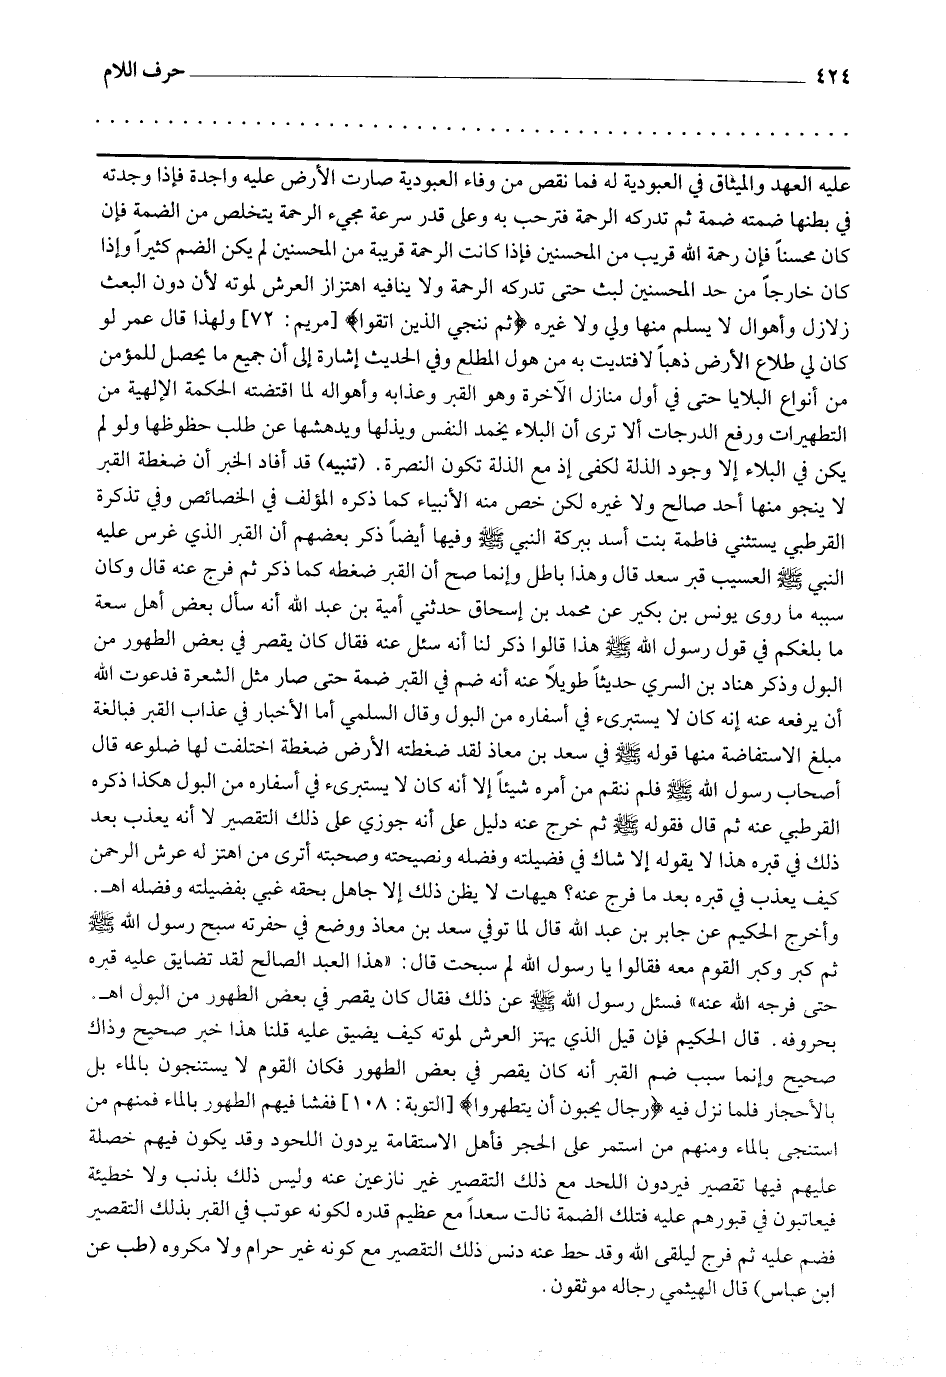 ٤٢٤ حرف اللام
عليه العهد والميثاق في العبودية له فما نقص من وفاء العبودية صارت الأرض عليه واجدة فإذا وجدته
في بطنها ضمته ضمة ثم تدركه الرحمة فترحب به وعلى قدر سرعة مجيء الرحمة يتخلص من الضمة فإن
كان محسناً فإن رحمة الله قريب من المحسنين فإذا كانت الرحمة قريبة من المحسنين لم يكن الضم كثيراً وإذا
كان خارجاً من حد المحسنين لبث حتى تدركه الرحمة ولا ينافيه اهتزاز العرش لموته لأن دون البعث
زلازل وأهوال لا يسلم منها ولي ولا غيره ﴿ثم ننجي الذين اتقوا﴾ [مريم: ٧٢] ولهذا قال عمر لو
كان لي طلاع الأرض ذهباً لافتديت به من هول المطلع وفي الحديث إشارة إلى أن جميع ما يحصل للمؤمن
من أنواع البلايا حتى في أول منازل الآخرة وهو القبر وعذابه وأهواله لما اقتضته الحكمة الإلهية من
التطهيرات ورفع الدرجات ألا ترى أن البلاء يخمد النفس ويذلها ويدهشها عن طلب حظوظها ولو لم
يكن في البلاء إلا وجود الذلة لكفى إذ مع الذلة تكون النصرة. (تنبيه) قد أفاد الخبر أن ضغطة القبر
لا ينجو منها أحد صالح ولا غيره لكن خص منه الأنبياء كما ذكره المؤلف في الخصائص وفي تذكرة
القرطبي يستثني فاطمة بنت أسد ببركة النبي ﷺ وفيها أيضاً ذكر بعضهم أن القبر الذي غرس عليه
النبي ﷺ العسيب قبر سعد قال وهذا باطل وإنما صح أن القبر ضغطه كما ذكر ثم فرج عنه قال وكان
سببه ما روى يونس بن بكير عن محمد بن إسحاق حدثني أمية بن عبد الله أنه سأل بعض أهل سعة
ما بلغكم في قول رسول الله ﷺ هذا قالوا ذكر لنا أنه سئل عنه فقال كان يقصر في بعض الطهور من
البول وذكر هناد بن السري حديثاً طويلاً عنه أنه ضم في القبر ضمة حتى صار مثل الشعرة فدعوت الله
أن يرفعه عنه إنه كان لا يستبرىء في أسفاره من البول وقال السلمي أما الأخبار في عذاب القبر فبالغة
مبلغ الاستفاضة منها قوله ﷺ في سعد بن معاذ لقد ضغطته الأرض ضغطة اختلفت لها ضلوعه قال
أصحاب رسول الله ﷺ فلم ننقم من أمره شيئاً إلا أنه كان لا يستبرىء في أسفاره من البول هكذا ذكره
القرطبي عنه ثم قال فقوله ﷺ ثم خرج عنه دليل على أنه جوزي على ذلك التقصير لا أنه يعذب بعد
ذلك في قبره هذا لا يقوله إلا شاك في فضيلته وفضله ونصيحته وصحبته أترى من اهتز له عرش الرحمن
كيف يعذب في قبره بعد ما فرج عنه؟ هيهات لا يظن ذلك إلا جاهل بحقه غبي بفضيلته وفضله اهـ.
وأخرج الحكيم عن جابر بن عبد الله قال لما توفي سعد بن معاذ ووضع في حفرته سبح رسول الله ﷺ
ثم كبر وكبر القوم معه فقالوا يا رسول الله لم سبحت قال: «هذا العبد الصالح لقد تضايق عليه قبره
حتى فرجه الله عنه» فسئل رسول الله ﷺ عن ذلك فقال كان يقصر في بعض الطهور من البول اهـ.
بحروفه. قال الحكيم فإن قيل الذي يهتز العرش لموته كيف يضيق عليه قلنا هذا خبر صحيح وذاك
صحيح وإنما سبب ضم القبر أنه كان يقصر في بعض الطهور فكان القوم لا يستنجون بالماء بل
بالأحجار فلما نزل فيه ﴿رجال يحبون أن يتطهروا﴾ [التوبة: ١٠٨] ففشا فيهم الطهور بالماء فمنهم من
استنجى بالماء ومنهم من استمر على الحجر فأهل الاستقامة يردون اللحود وقد يكون فيهم خصلة
عليهم فيها تقصير فيردون اللحد مع ذلك التقصير غير نازعين عنه وليس ذلك بذنب ولا خطيئة
فيعاتبون في قبورهم عليه فتلك الضمة نالت سعداً مع عظيم قدره لكونه عوتب في القبر بذلك التقصير
فضم عليه ثم فرج ليلقى الله وقد حط عنه دنس ذلك التقصير مع كونه غير حرام ولا مكروه (طب عن
ابن عباس) قال الهيثمي رجاله موثقون.